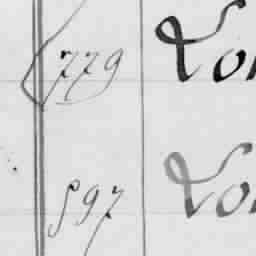 779 Lo
597 Lo